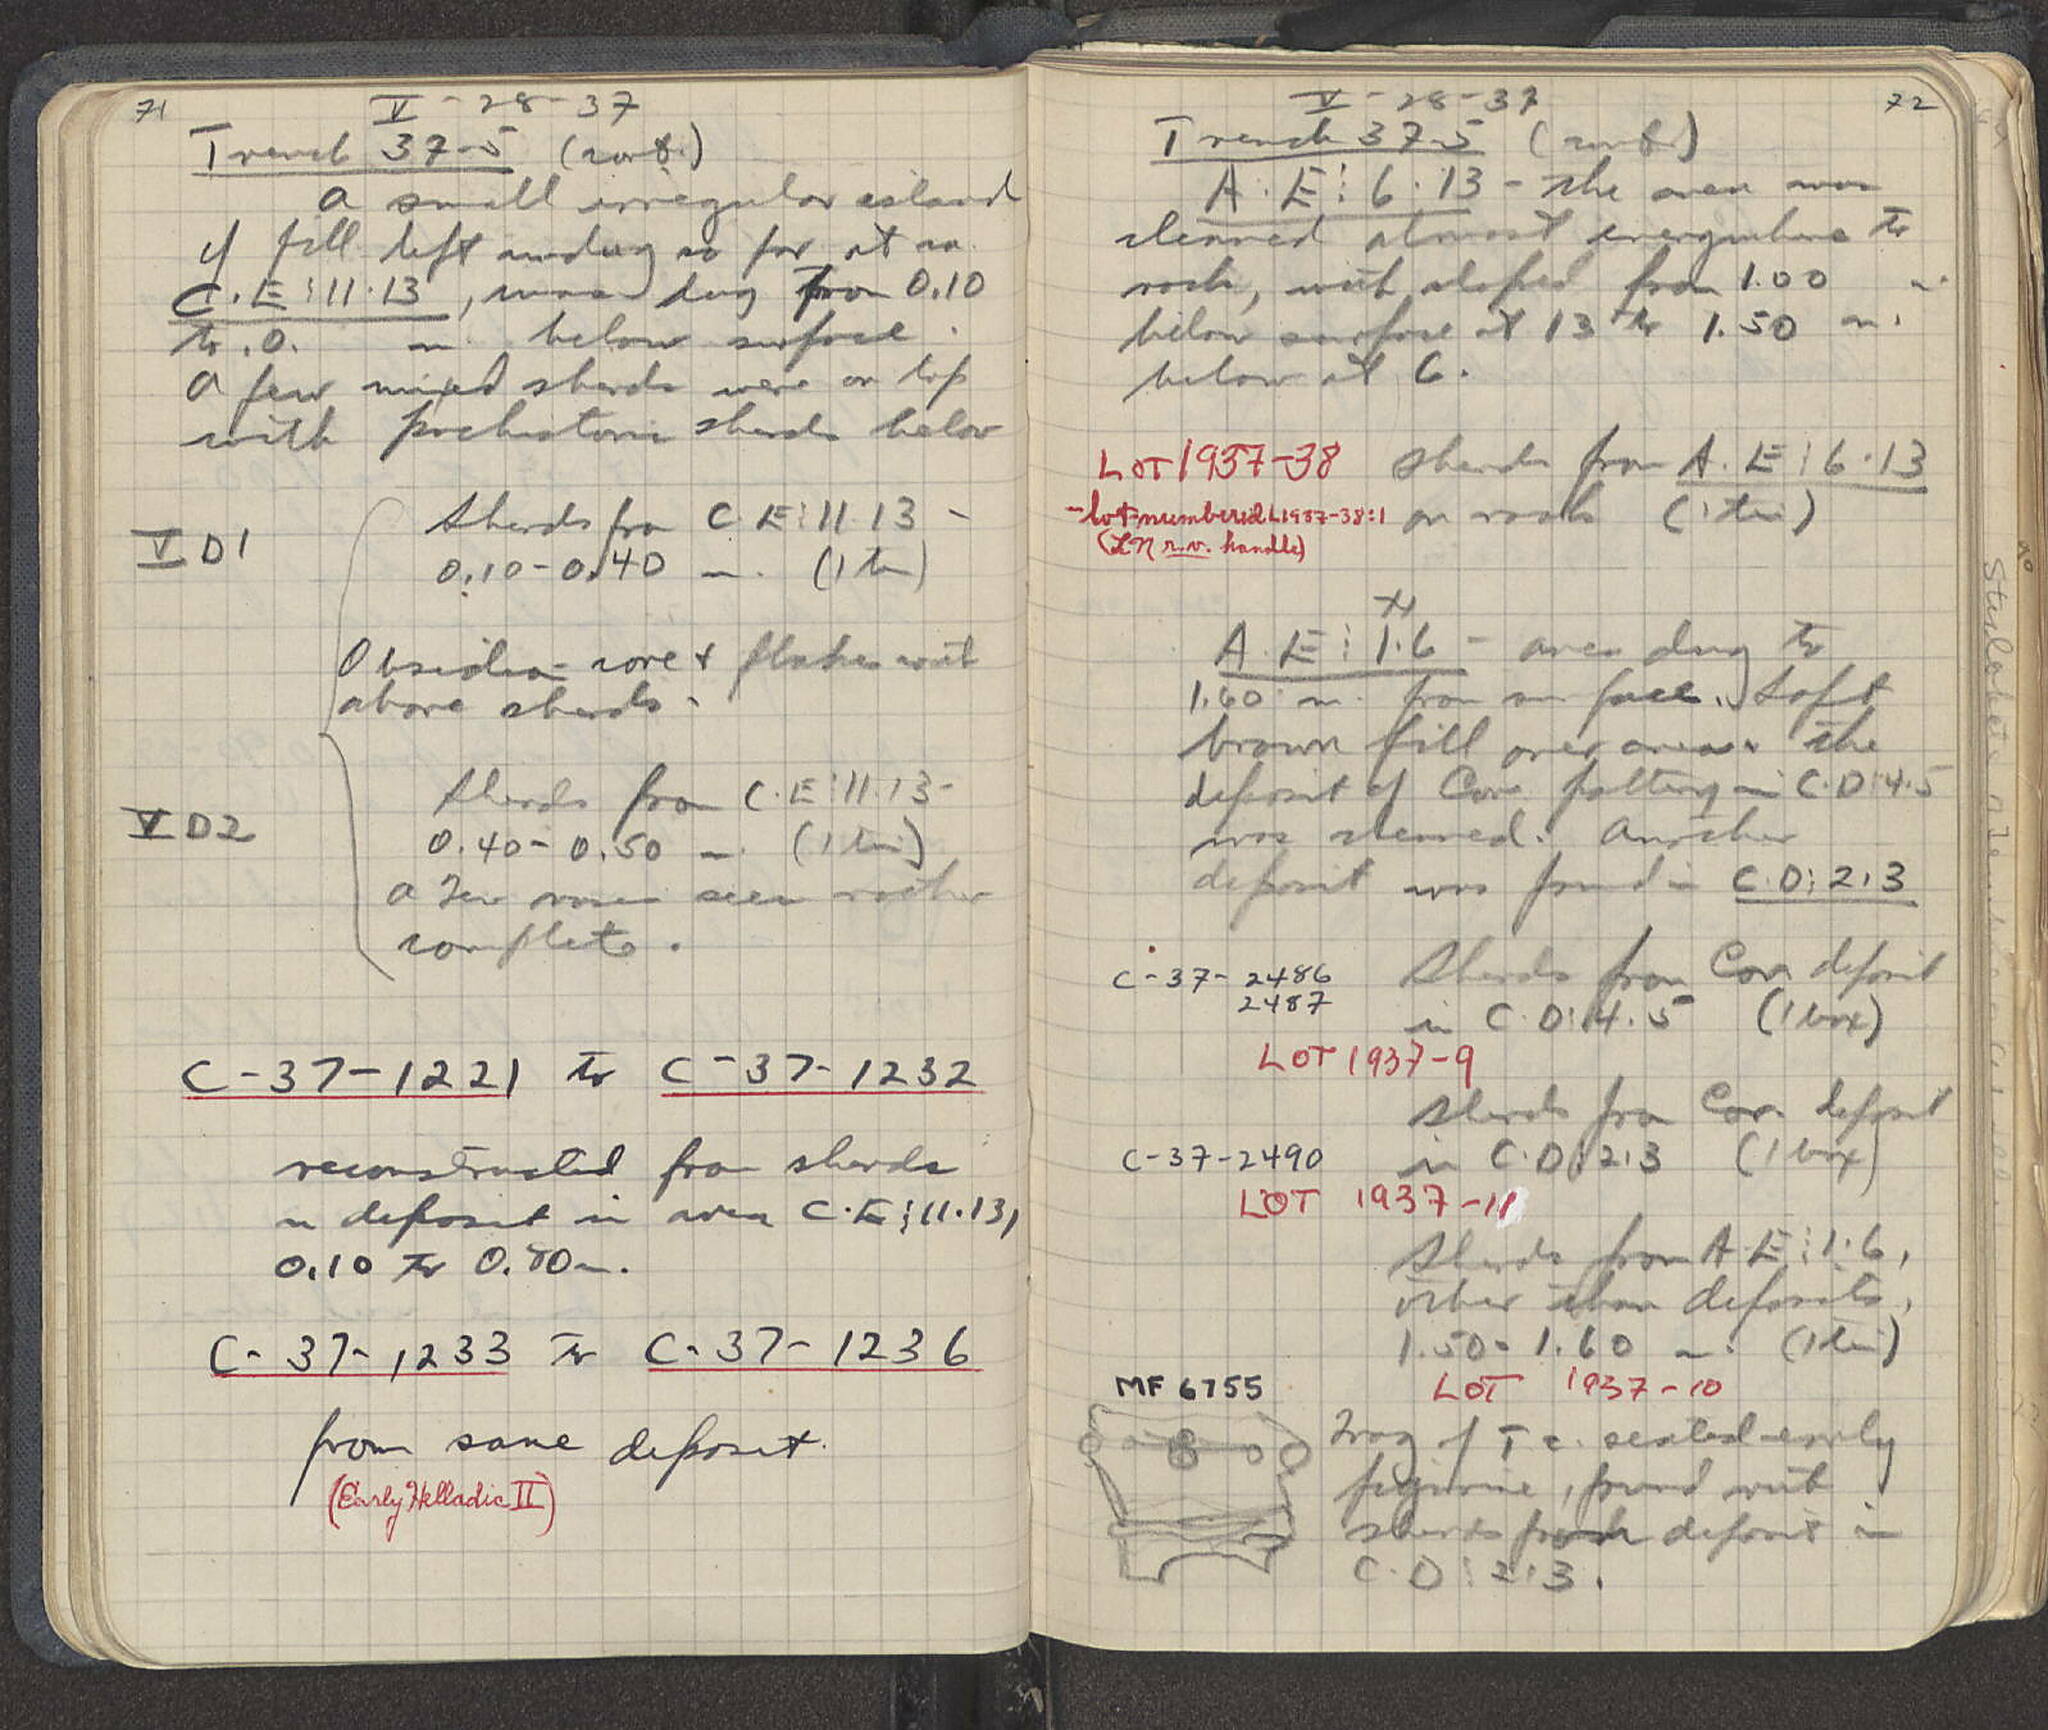 71
V - 28 - 37
Trench 37-5 (cont.)
A small irregular island
of fill left undug so far at ca.
C.E:11.13, was dug from 0.10
to .0. m. below surface.
A few mixed sherds were on top
with prehistoric sherds below
V D1
Sherds from C.E:11.13 -
0.10-0.40 m. (1 tin)
Obsidian core + flakes with
above sherds.
V D2
Sherds from C.E:11.13-
0.40-0.50 m. (1 tin)
A few vases seem rather
complete.
C-37-1221 to C-37-1232
reconstructed from sherds
in deposit in area C.E:11.13,
0.10 to 0.50 m.
C-37-1233 to C-37-1236
from same deposit.
(Early Helladic II)
72
V - 28 - 37
Trench 37-5 (cont.)
A.E:6.13 - The area was
cleaned almost everywhere to
rock, with sloped from 1.00 m.
below surface at 13 to 1.50 m.
below at 6.
LOT 1937-38
Sherds from A.E:6.13
- lot numbered L1937-38:1
on rock (1 tin)
(LN r.v. handle)
N
A.E:1.6 - area dug to
1.60 m. from surface. Soft
brown fill over area. The
deposit of Cor. pottery in C.D:4.5
was cleaned. Another
deposit was found in C.D:2.3
C-37-2486
2487
Sherds from Cor. deposit
in C.D:4.5 (1 box)
LOT 1937-9
Sherds from Cor. deposit
C-37-2490
in C.D:2.3 (1 box)
LOT 1937-11
Sherds from A.E:1.6,
other than deposits,
1.50-1.60 m. (1 tin)
LOT 1937-10
MF 6755
Frag of T.c. seated early
figurine, found with
sherds from deposit in
C.D:2.3.